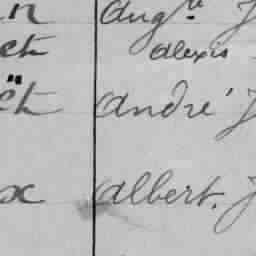 n Augte J
ct Alexis
ct André J
x Albert. J